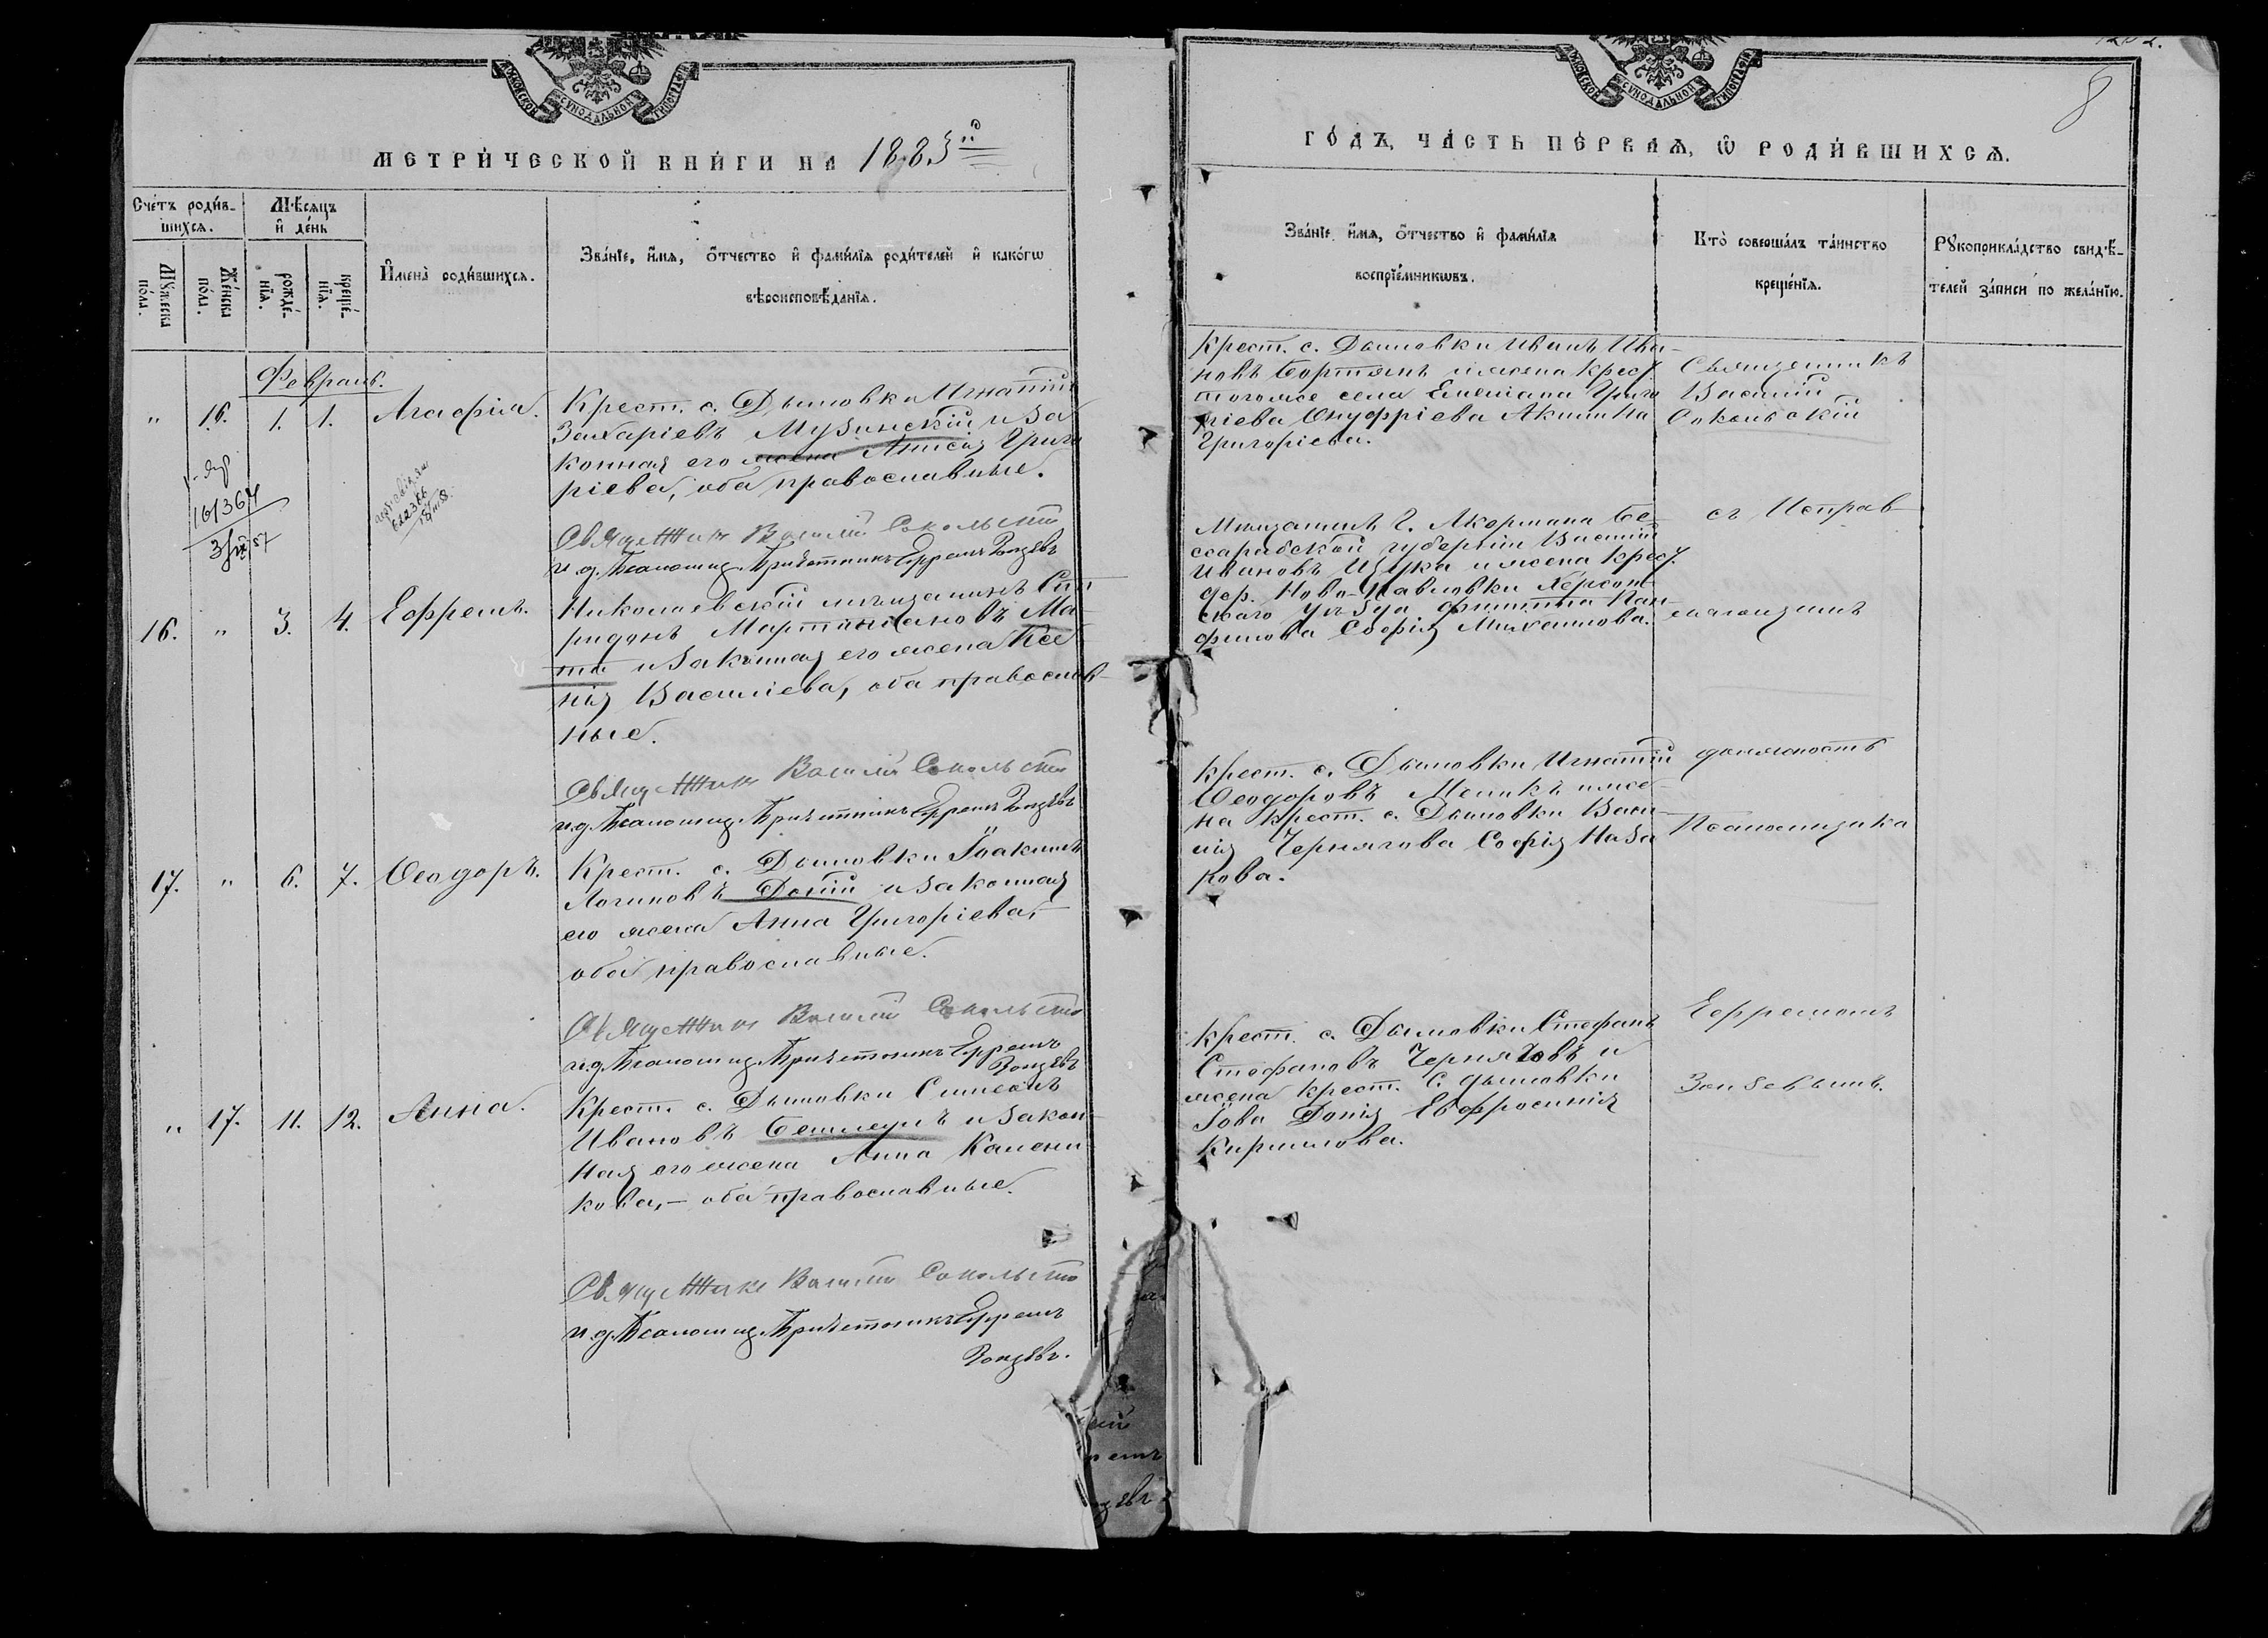 МОСКОВСКОЙ СѴНОДАЛЬНОЙ ТИПОГРАФІИ
МЕТРИ́ЧЕСКОЙ КНИ́ГИ НА 1883й
Сче́тъ роди́в-
шихся.
Мѣ́сяцъ
и҆ де́нь
Мꙋ́жеска
по́ла.
Же́нска
по́ла.
рожде́-
нїѧ.
креще́-
нїѧ.
И҆мена̀ роди́вшихсѧ.
Зва́нїе, и҆́мѧ, ѻ҆́тчество и҆ фами́лїѧ роди́телей и҆ како́гѡ
вѣроисповѣ́данїѧ.
Февраль.
" 16. 1. 1. Агафія.
Крест. с. Дымовки Игнатій
Захаріевъ Музинскій и за
конная его жена Анисія Григо
ріева, оба православные.
161367
Священникъ Василій Сокольскій
и.д. Псаломщ. Причетникъ Ефремъ Зонзевъ
16. " 3. 4. Ефремъ.
Николаевскій мѣщанинъ Спи
ридонъ Мартиніановъ Ма
та и законная его жена Ксе
нія Василіева, оба православ-
ные.
Священникъ Василій Сокольскій
и.д. Псаломщ. Причетникъ Ефремъ Зонзевъ
17. " 6. 7. Ѳеодоръ.
Крест. с. Дымовки Іоакимъ
Логиновъ Доній и законная
его жена Анна Григоріева,-
оба православные.
Священникъ Василій Сокольскій
и.д. Псаломщ. Причетникъ Ефремъ
Зонзевъ
" 17. 11. 12. Анна.
Крест. с. Дымовки Симеонъ
Ивановъ и закон
ная его жена Анна
кова,- оба православные.
Священникъ Василій Сокольскій
и.д. Псаломщ. Причетникъ Ефремъ
Зонзевъ.
МОСКОВСКОЙ СѴНОДАЛЬНОЙ ТИПОГРАФІИ
8
ГО́ДЪ, ЧА́СТЬ ПЕ́РВАѦ, Ѽ РОДИ́ВШИХСѦ.
Зва́нїе, и҆́мѧ, ѻ҆́тчество и҆ фами́лїѧ
воспрїе́мникѡвъ.
Кто̀ соверша́лъ та́инство
креще́нїѧ.
Рꙋкоприкла́дство свидѣ́-
телей за́писи по жела́нїю.
Крест. с. Дымовки Иванъ Ива-
новъ Бортянъ и жена крест.
тогоже села Емеліана Григо
ріева Онуфріева Акилина
Григоріева.
Священникъ
Василій
Сокольскій
Мѣщанинъ г. Акермана Бе-
ссарабской губерніи Василій
Ивановъ и жена крест.
дер. Ново-Павловки Херсон-
скаго уѣзда Филиппа Пан-
филова Софія Михаилова.
съ Исправ-
ляющимъ
Крест. с. Дымовки Игнатій
Ѳеодоровъ и же-
на крест. с. Дымовки Васи-
лія Чернягова Софія Наза
рова.
должность
Псаломщика
Крест. с. Дымовки Стефанъ
Стефановъ Черняговъ и
жена крест. с. Дымовки
Іова Донія Евфросинія
Кириллова.
Ефремомъ
Зонзевымъ.